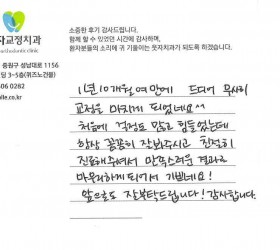 소중한 후기 감사드립니다.
함께 할 수 있었던 시간에 감사하며,
환자분들의 소리에 귀 기울이는 풋자교정치과가 되도록 하겠습니다.
자교정치과
orthodontic clinic
중원구 성남대로 1156
3~5층(위즈노건물)
606 0282
ile.co.kr
1년 10개월여만에 드디어 무사히
교정을 마치게 되었네요^^
처음에 걱정도 많고 힘들었는데
항상 꼼꼼히 잘봐주시고 친절히
진료해주셔서 만족스러운 결과로
마무리하게 되어서 기쁘네요!
앞으로도 잘부탁드립니다! 감사합니다.